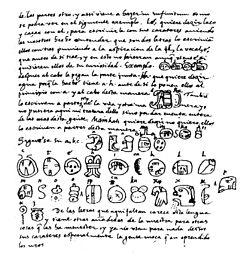 de las partes otro, y assi viene a hazer in infinitum como
se podra ver en el siguiente exemplo. Lé, quiere dezir laço
y caçar con el, para escrivirle con sus carateres
que son dos letras lo escrivian
ellos con tres puniendo a la aspiracion de la l, la vocal e,
que antes de si trae, y en esto no hierran aunque
quisieren ellos de su curiosidad. Exemplo.
despues al cabo le pegan la parte junta. Ha que quiere dezir
agua porque la hache tiene a h antes de si la ponen ellos al
principio con a y al cabo desta manera
lo escriven a partes de la una y otra manera yo
no pusiera aqui ni tratara dello sino por dar cuenta entera
de las cosas desta gente. Ma in kati quiere dezir no quiero ellos
lo escriven a partes desta manera
Siguese su a, b, c.
De las letras que aqui faltan carece esta lengua
y tiene otras añadidas de la nuestra para otras
cosas que las ha menester, y ya no usan para nada destos
sus carateres especialmente la gente moça que an aprendido
los nros